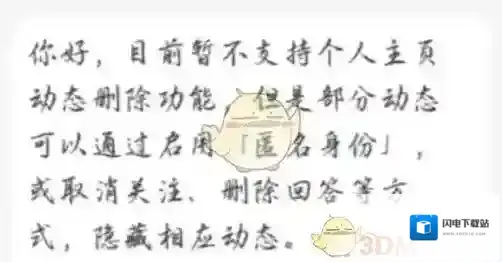 你好，目前暂不支持个人主页
动态删除功能，但是部分动态
可以通过启用「匿名身份」，
或取消关注、删除回答等方
式，隐藏相应动态。
3DM
闪电下载站